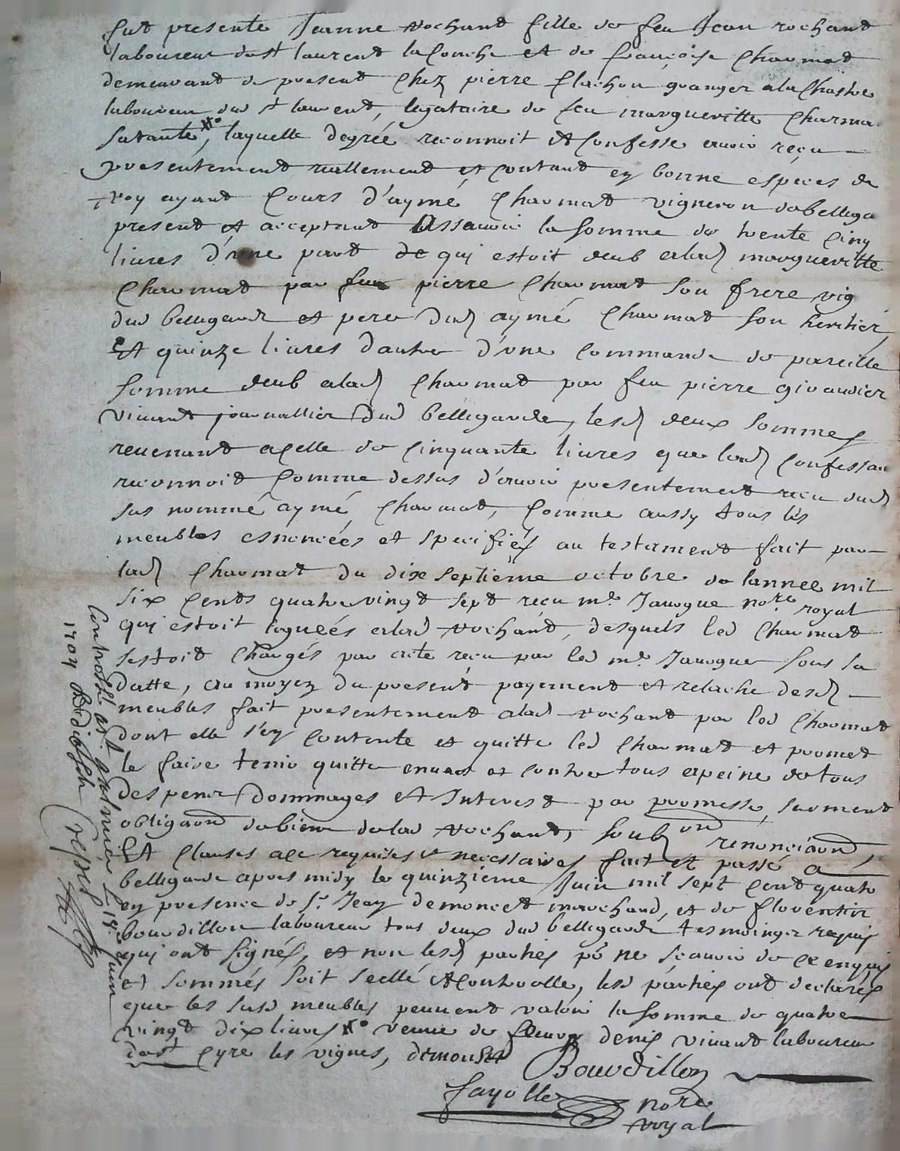 fut presente Jeanne Rochand fille de feu Jean rochand
laboureur de st laurent la Conche et de françoise Charmat
demeurant de present Chez pierre flachon granger a la
laboureur dud st laurent, legataire de feu margueritte Charma
sa tante #o, laquelle de gré reconnoit et Confesse avoir reçu
presentement reallement et Contant en bonne especes de
roy ayant Cours d'aymé Charmat vigneron de bellega
present et acceptant Assavoir la somme de trente Cinq
livres d'une part de qui estoit deub a lad margueritte
Charmat par feu pierre Charmat son frere vig
dud bellegarde et pere dud aymé Charmat son heritier
Et quinze livres d'autre d'une Commande de pareille
somme deub a lad Charmat par feu pierre giraudier
vivant journallier dud bellegarde, lesd deux sommes
revenant a Celle de Cinquante livres que lad Confessan
reconnoit Comme dessus d'avoir presentement reçu dud
sus nommé aymé Charmat, Comme aussy tous les
meubles esnoncées et specifiés au testament fait par
lad Charmat du dix septième octobre de lannee mil
six Cents quatre vingt sept reçu me Jaroque nore royal
qui estoit leguées a lad Rochand, desquels led Charmat
sestoit Chargés par acte reçu par led me Jaroque sous sa
datte, au moyen du present payement et relache desd
meubles fait presentement a lad Rochand par led Charmat
dont elle s'en Contente et quitte led Charmat et promet
le faire tenir quitte envers et Contre tous a peine de tous
despens Dommages et Interest par promesse, serment
obligaon de bien de lad Rochand, soubon renonciaon,
Et Clauses a Ce requises et necessaires fait et passé a
bellegarde apres midy le quinzième Juin mil sept Cent quatre
en presence de sr Jean demoncet marchand, et de florentin
bourdillon laboureur tous deux dud bellegarde tesmoings requis
qui ont signés, et non lesd parties po ne scavoir de Ce enquis
et sommés soit scellé et Controolle, lesd parties ont declarés
que les susd meubles peuvent valoir la somme de quatre
vingt dix livres #o veuve de fleury denis vivant laboureur
de st Cyre les vignes, demoncet Bourdillon
fayolle nore
royal
Controllé a st galmier le 18e Juin
1704